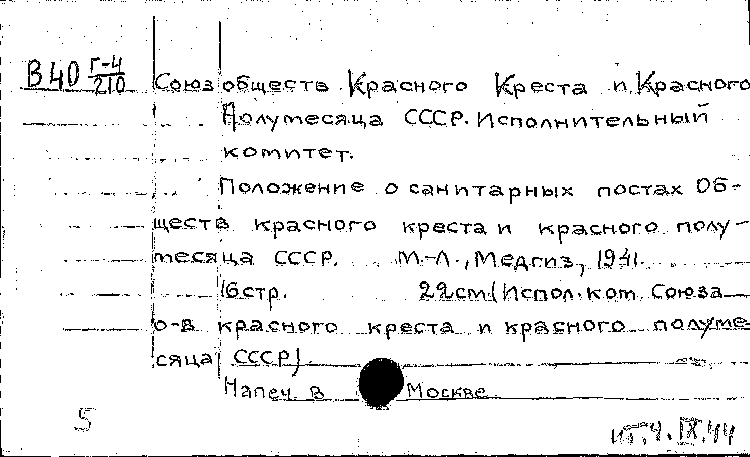 В 40 Г-4/210
Союз обществ Красного Креста и Красного
Полумесяца СССР. Исполнительный
комитет.
Положение о санитарных постах Об-
ществ красного креста и красного полу-
месяца СССР. М.-Л., Медгиз, 1941.
16 стр. 22 см. (Испол. ком. Союза
о-в красного креста и красного полуме
сяца СССР).
Напеч. в Москве.
5
4.IX.44